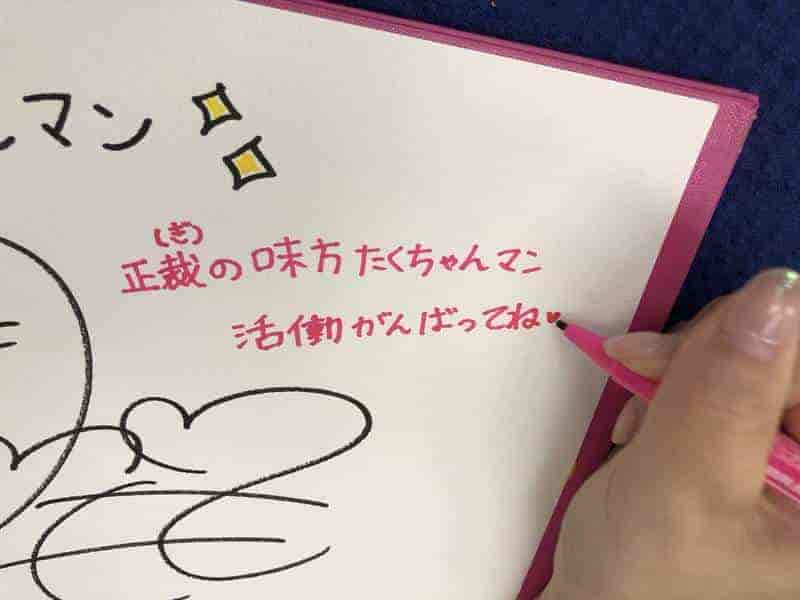 んマン
(ぎ)
正裁の味方たくちゃんマン
活動がんばってね♥